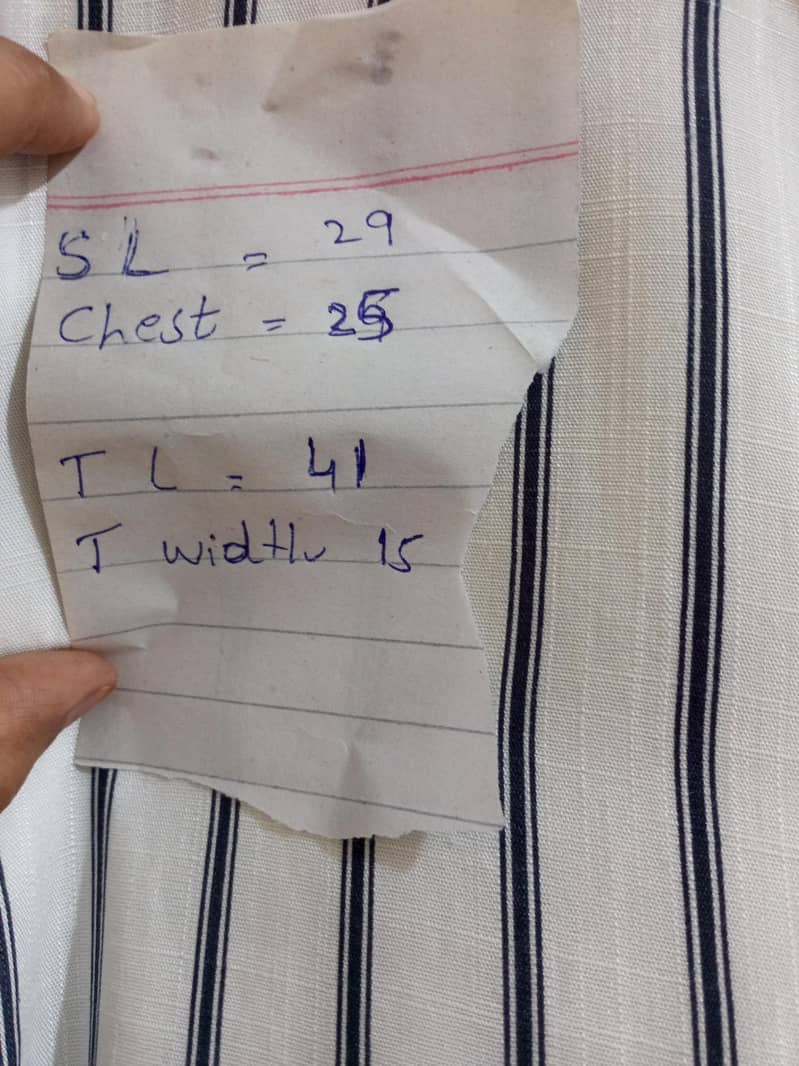 SL = 29
Chest = 25
TL = 41
T width 15